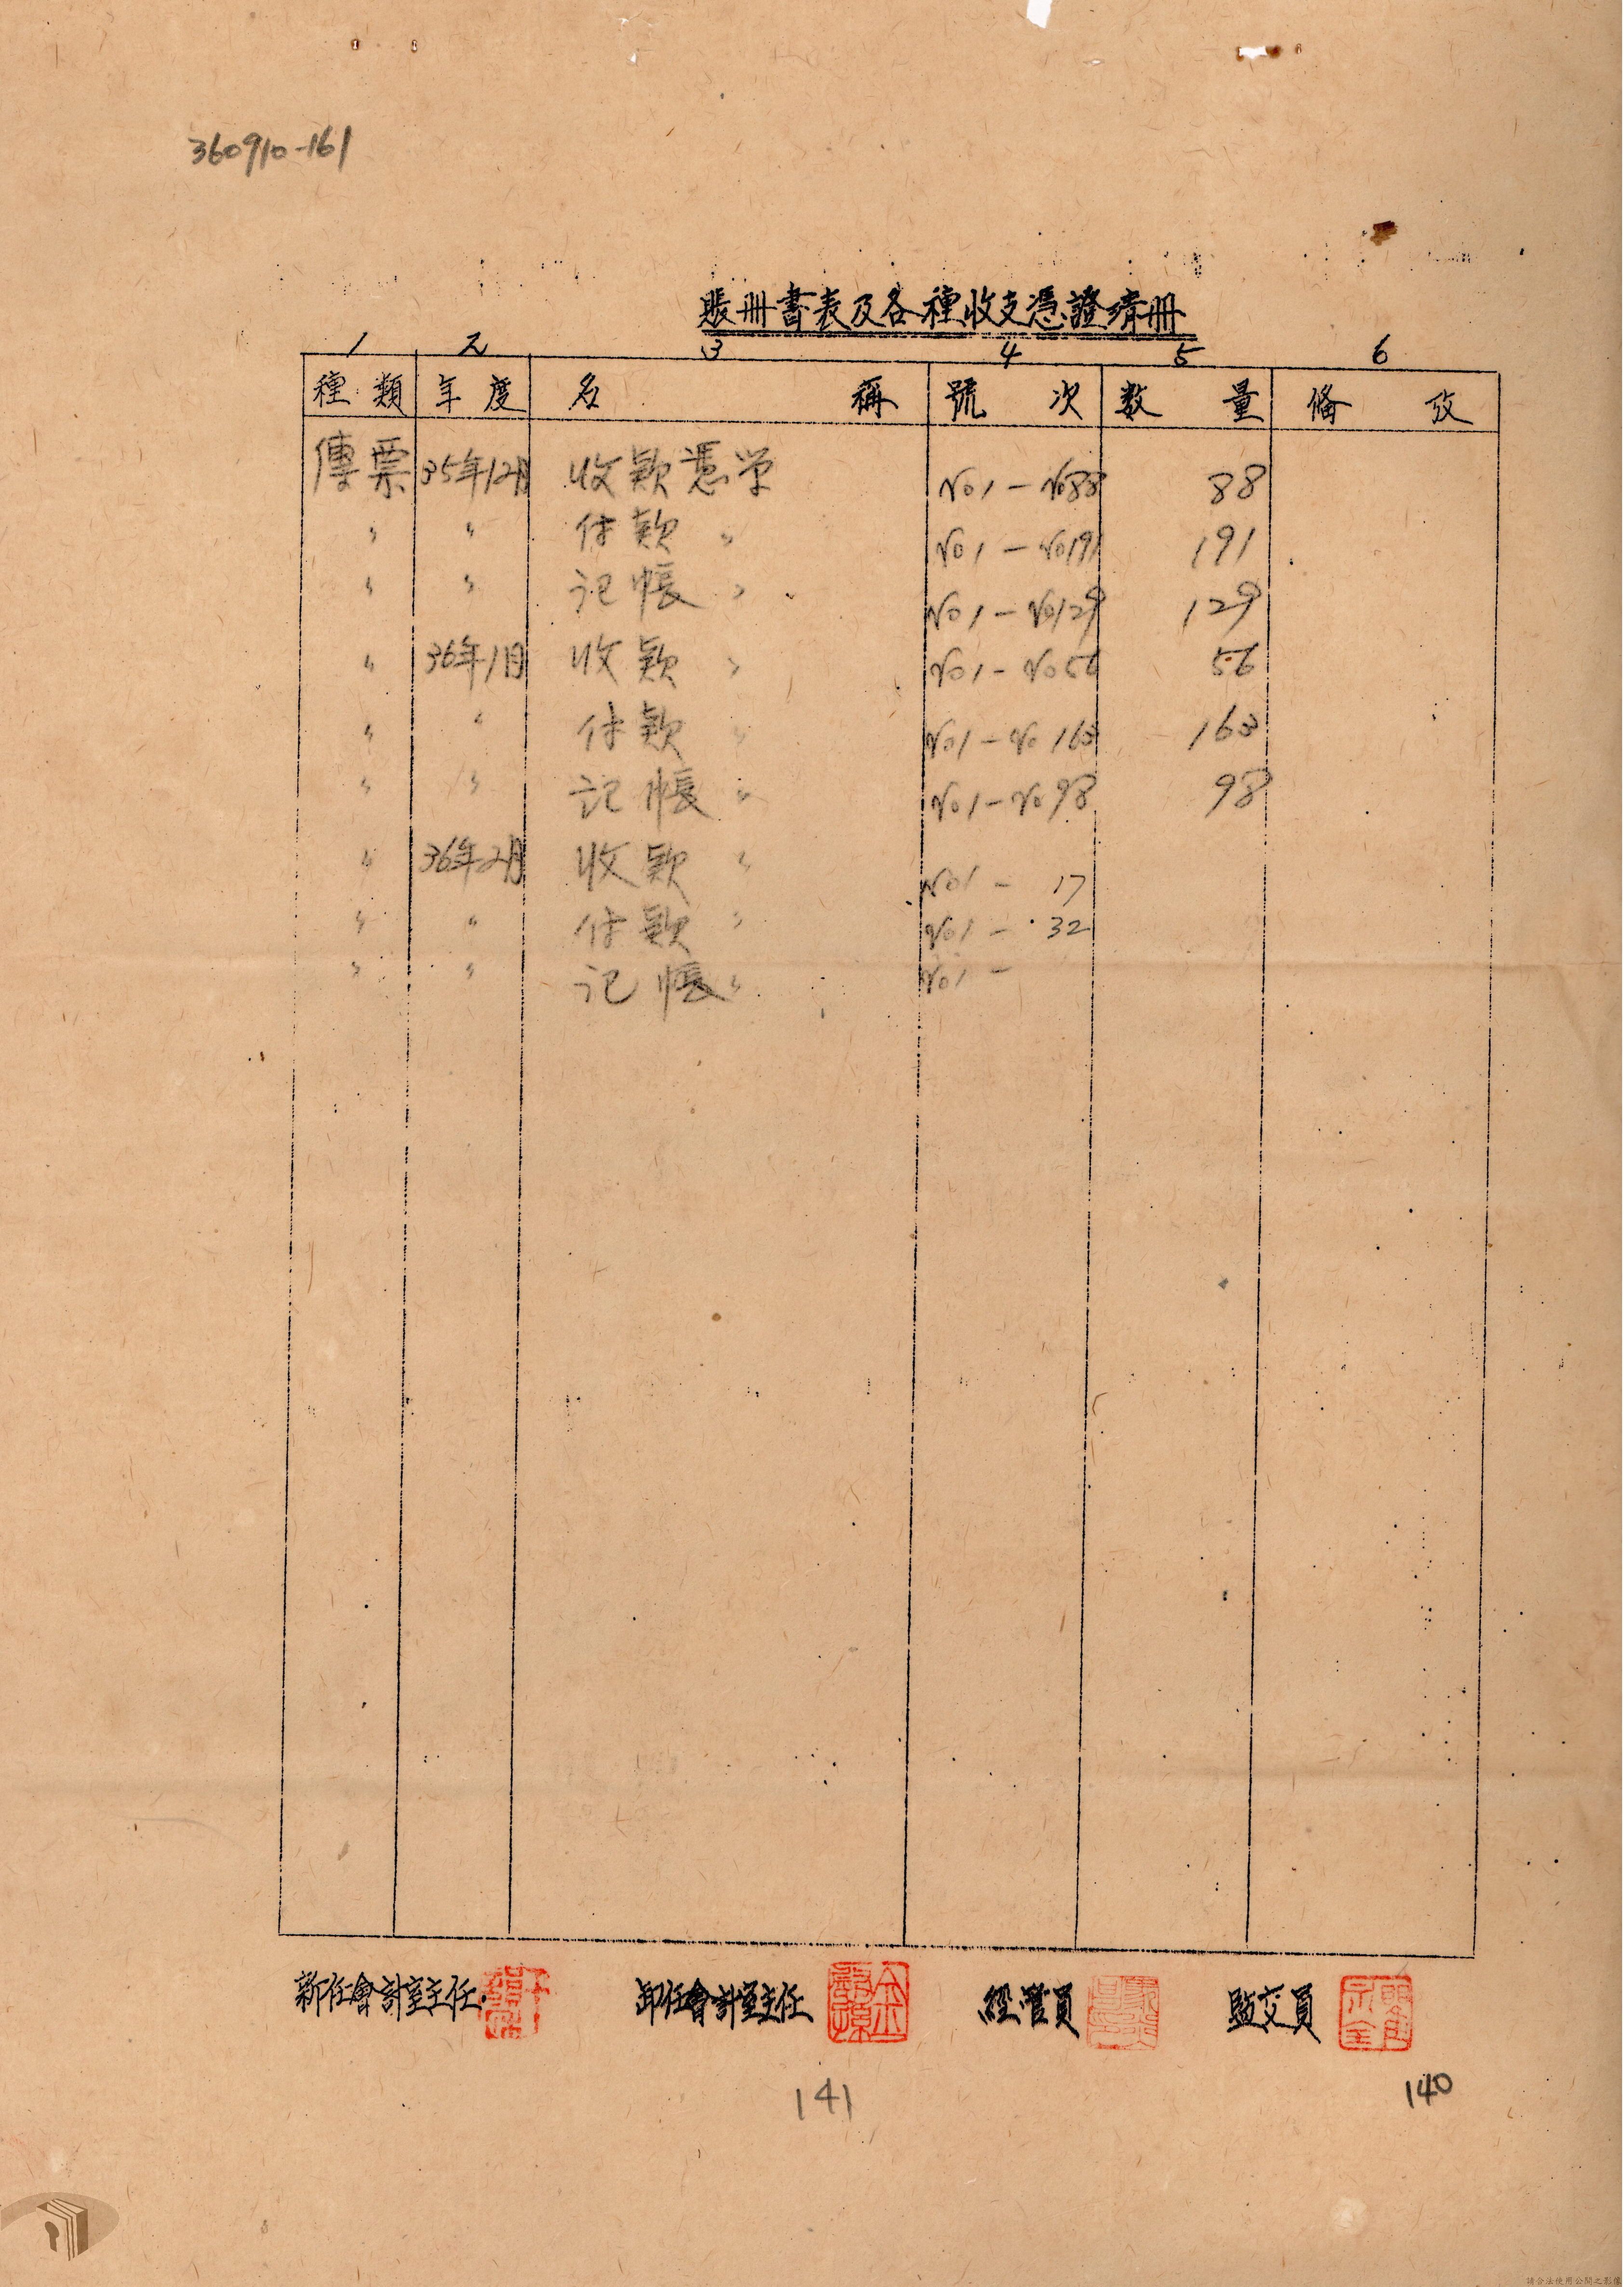 360910-161
賬冊書表及各種收支憑證清冊
1 2 3 4 5 6
種類 年度 名稱 號次 数量 偹攷
傳票 35年12月 收款憑单 No1-No88 88
〃 〃 付款〃 No1-No191 191
〃 〃 記帳〃 No1-No129 129
〃 36年1月 收款〃 No1-No56 56
〃 〃 付款〃 No1-No163 163
〃 〃 記帳〃 No1-No98 98
〃 36年2月 收款〃 No1- 17
〃 〃 付款〃 No1- 32
〃 〃 記帳〃 No1-
新任會計室主任 卸任會計室主任 經管員 監交員
141 140
請合法使用公開之影像